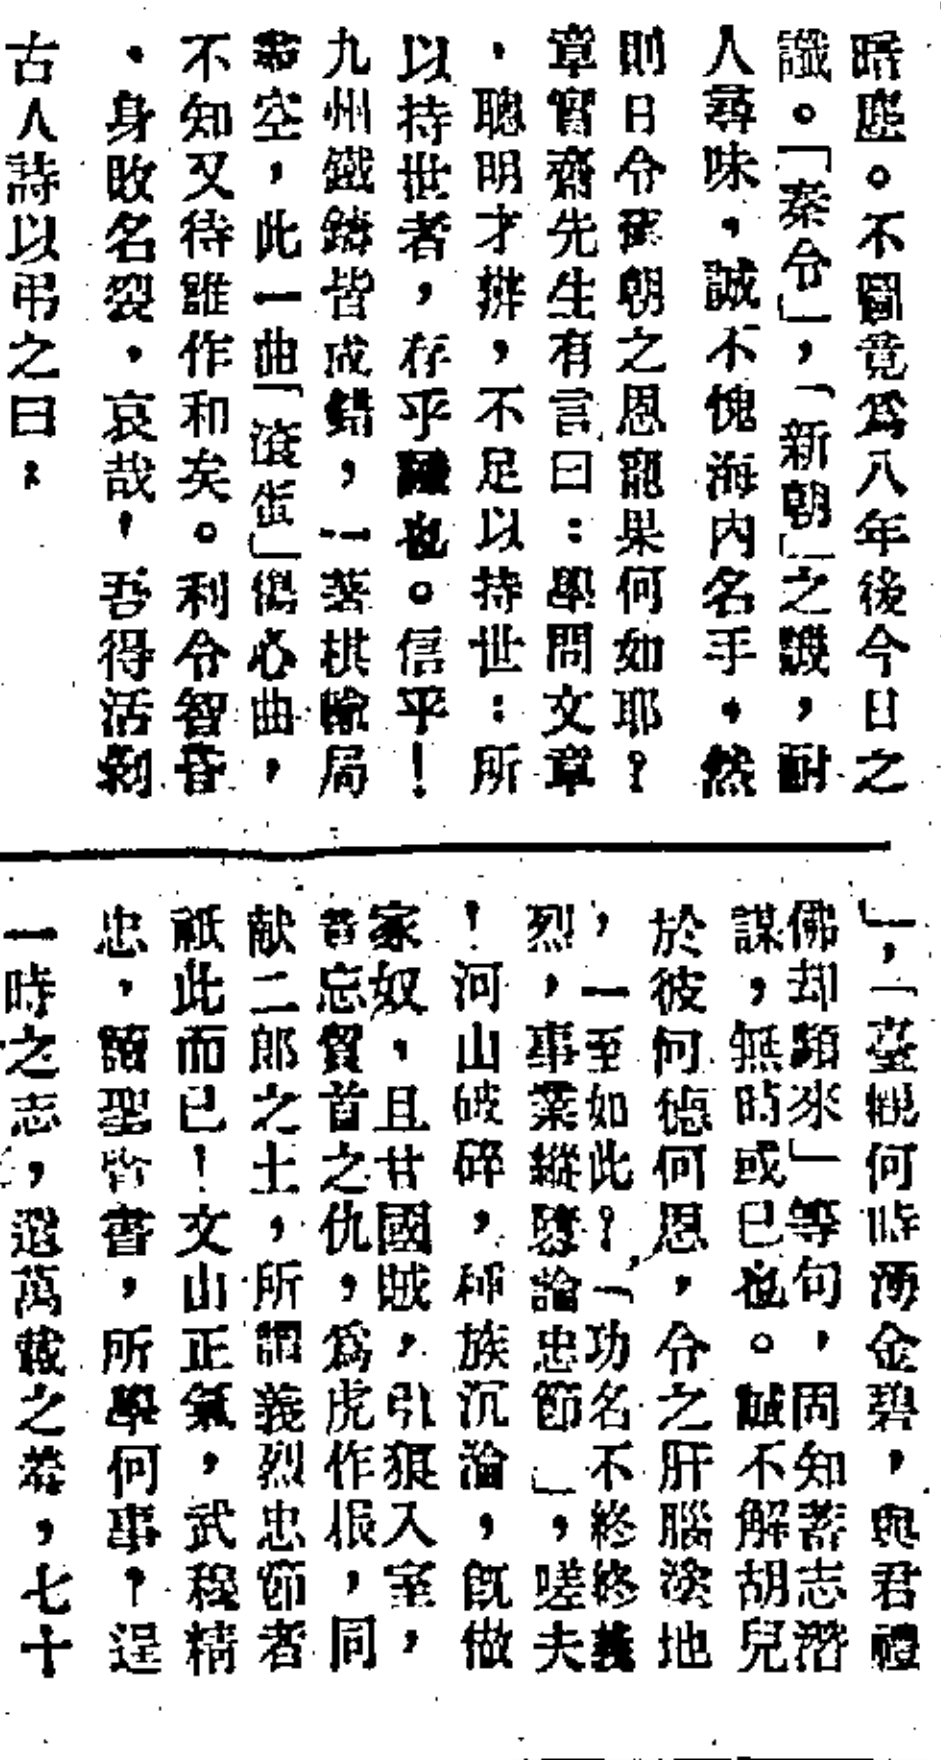 塵。不圖竟爲八年後今日之
讖。「秦令」，「新朝」之譏，耐
人尋味，誠不愧海內名手，然
則日今僞朝之恩寵果何如耶？
章實齋先生有言曰：學問文章
，聰明才辯，不足以持世：所
以持世者，存乎識也。信乎！
九州鐵鑄皆成錯，一著棋輸局
空，此一曲「滾蛋」傷心曲，
不知又待誰作和矣。利令智昏
，身敗名裂，哀哉，吾得活剝
古人詩以弔之曰：
」，「臺觀何時湧金碧，與君禮
佛却頻來」等句，固知蓄志潛
謀，無時或已也。誠不解胡兒
於彼何德何恩，令之肝腦塗地
，一至如此？「功名不終終義
烈，事業縱隳論忠節」，嗟夫
！河山破碎，種族沉淪，既做
家奴，且甘國賊，引狼入室，
昔忘貿首之仇，爲虎作倀，同
献二郎之土，所謂義烈忠節者
祇此而已！文山正氣，武穆精
忠，讀聖賢書，所學何事？逞
一時之志，遺萬載之羞，七十